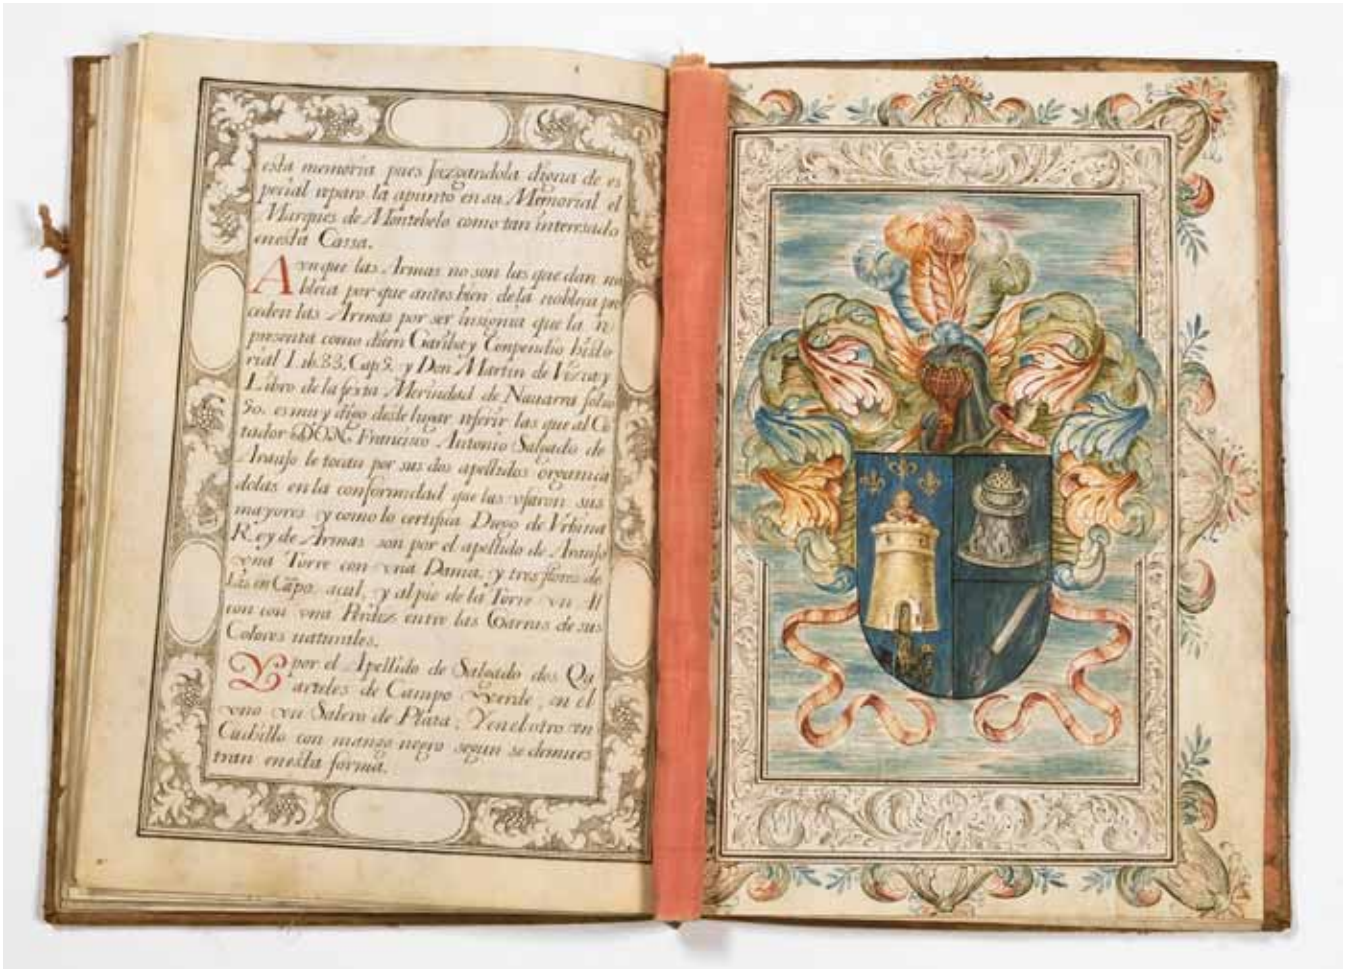 esta memoria pues Juzgandola digna de es
pecial reparo la apunto en su Memorial el
Marques de Montebelo como tan interesado
enesta Cassa.
Aunque las Armas no son las que dan no
bleza por que antes bien de la nobleza pro
ceden las Armas por ser insignia que la re
presenta como dizen Garibay Conpendio histo
rial L. ib. 33. Cap. 5. y Don Martin de Vizcay
Libro de la sexta Merindad de Nauarra folio
50. es muy digo deste lugar referir las que al Ci
tador DON Francisco Antonio Salgado de
Araujo le tocan por sus dos apellidos organica
dolas en la conformidad que las vsaron sus
mayores y como lo certifica Diego de Vrbina
Rey de Armas son por el apellido de Araujo
vna Torre con vna Dama, y tres flores de
Lis en Cãpo acul, y al pie de la Torre vn Al
con con vna Perdiz entre las Garras de sus
Colores naturales.
Y por el Apellido de Salgado dos Qu
arteles de Campo verde, en el
vno vn Salero de Plata, Y en el otro vn
Cuchillo con mango negro segun se demues
tran enesta forma.